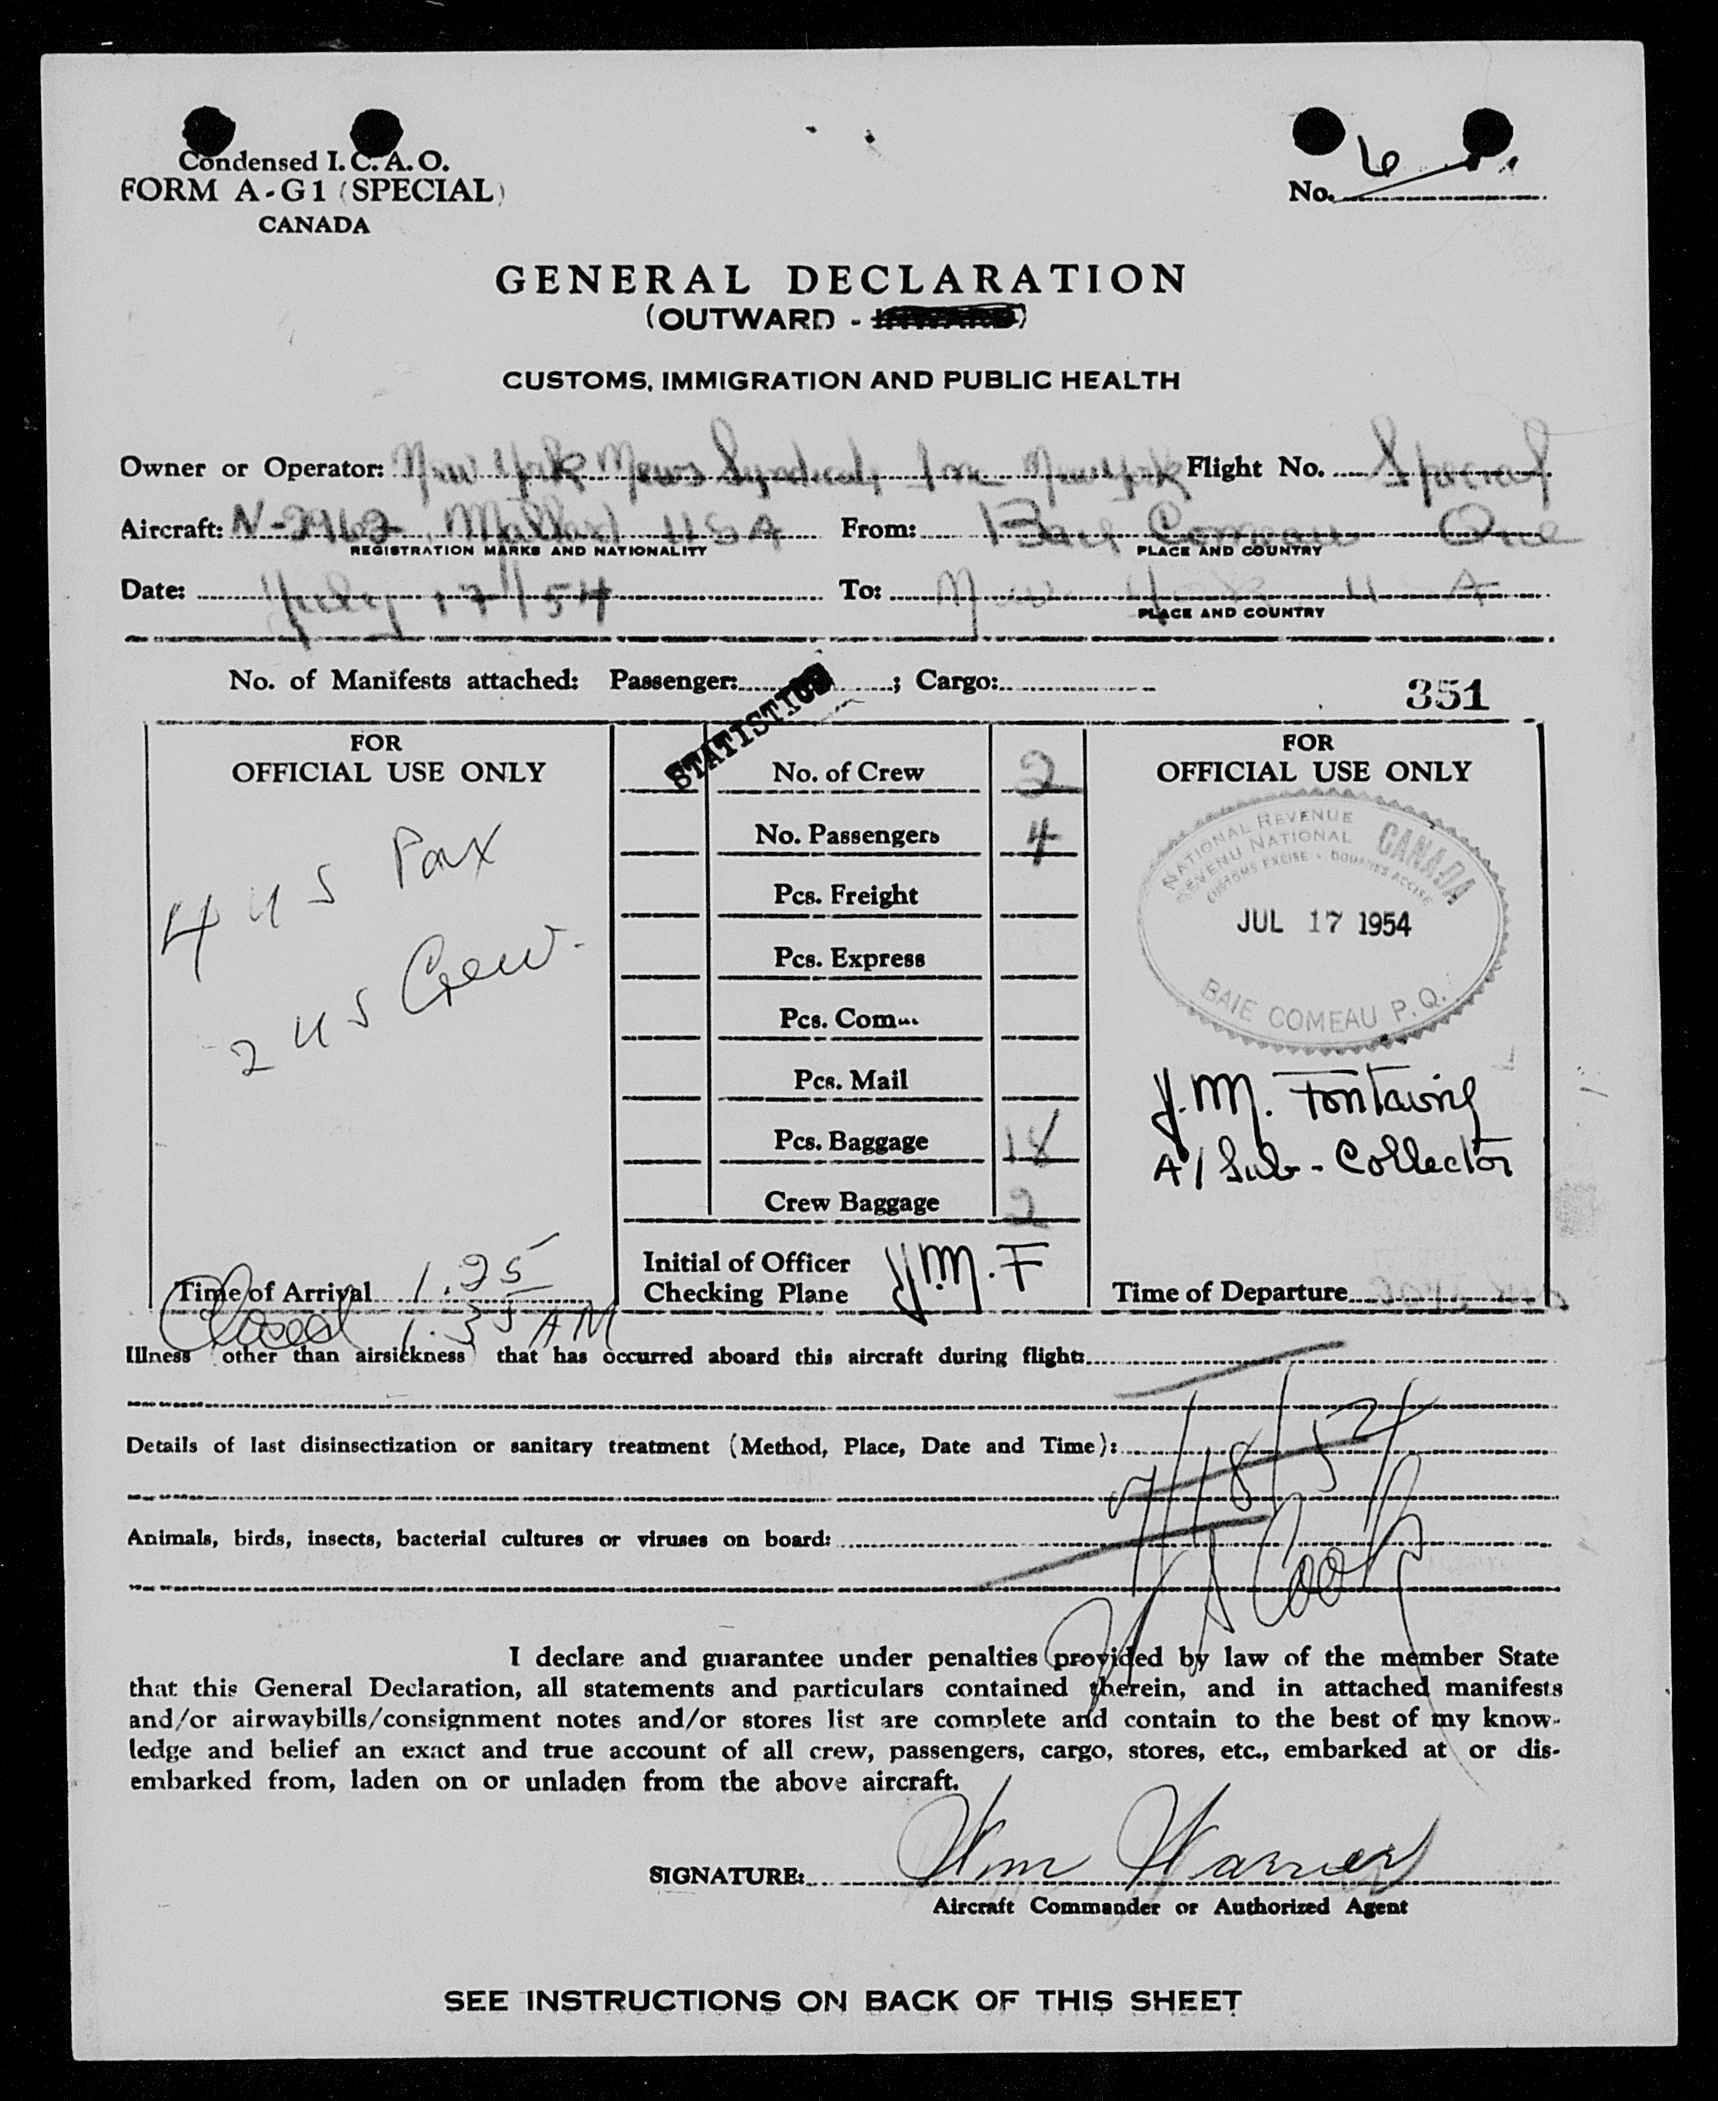 Condensed I. C. A. O.
FORM A-G1 (SPECIAL)
CANADA
No. 6
GENERAL DECLARATION
(OUTWARD - INWARD)
CUSTOMS, IMMIGRATION AND PUBLIC HEALTH
Owner or Operator: New York News Syndicate Inc New York Flight No. Special
Aircraft: N-2962, Mallard USA From: Baie Comeau Que
REGISTRATION MARKS AND NATIONALITY PLACE AND COUNTRY
Date: July 17/54 To: New York U S A
PLACE AND COUNTRY
No. of Manifests attached: Passenger: ; Cargo:
STATISTICS
351
FOR
OFFICIAL USE ONLY
4 US Pax
2 US Crew.
Time of Arrival 1.25
Closed 1.35 AM
No. of Crew 2
No. Passengers 4
Pcs. Freight
Pcs. Express
Pcs. Com
Pcs. Mail
Pcs. Baggage 18
Crew Baggage 2
Initial of Officer
Checking Plane J.M.F
FOR
OFFICIAL USE ONLY
NATIONAL REVENUE
REVENU NATIONAL
CUSTOMS EXCISE - DOUANES ACCISE
CANADA
JUL 17 1954
BAIE COMEAU P.Q.
J.M. Fontaine
A/Sub-Collector
Time of Departure
Illness other than airsickness that has occurred aboard this aircraft during flight:
Details of last disinsectization or sanitary treatment (Method, Place, Date and Time):
7/18/54
Animals, birds, insects, bacterial cultures or viruses on board:
Cook
I declare and guarantee under penalties provided by law of the member State
that this General Declaration, all statements and particulars contained therein, and in attached manifests
and/or airwaybills/consignment notes and/or stores list are complete and contain to the best of my know-
ledge and belief an exact and true account of all crew, passengers, cargo, stores, etc., embarked at or dis-
embarked from, laden on or unladen from the above aircraft.
SIGNATURE: Wm Warner
Aircraft Commander or Authorized Agent
SEE INSTRUCTIONS ON BACK OF THIS SHEET